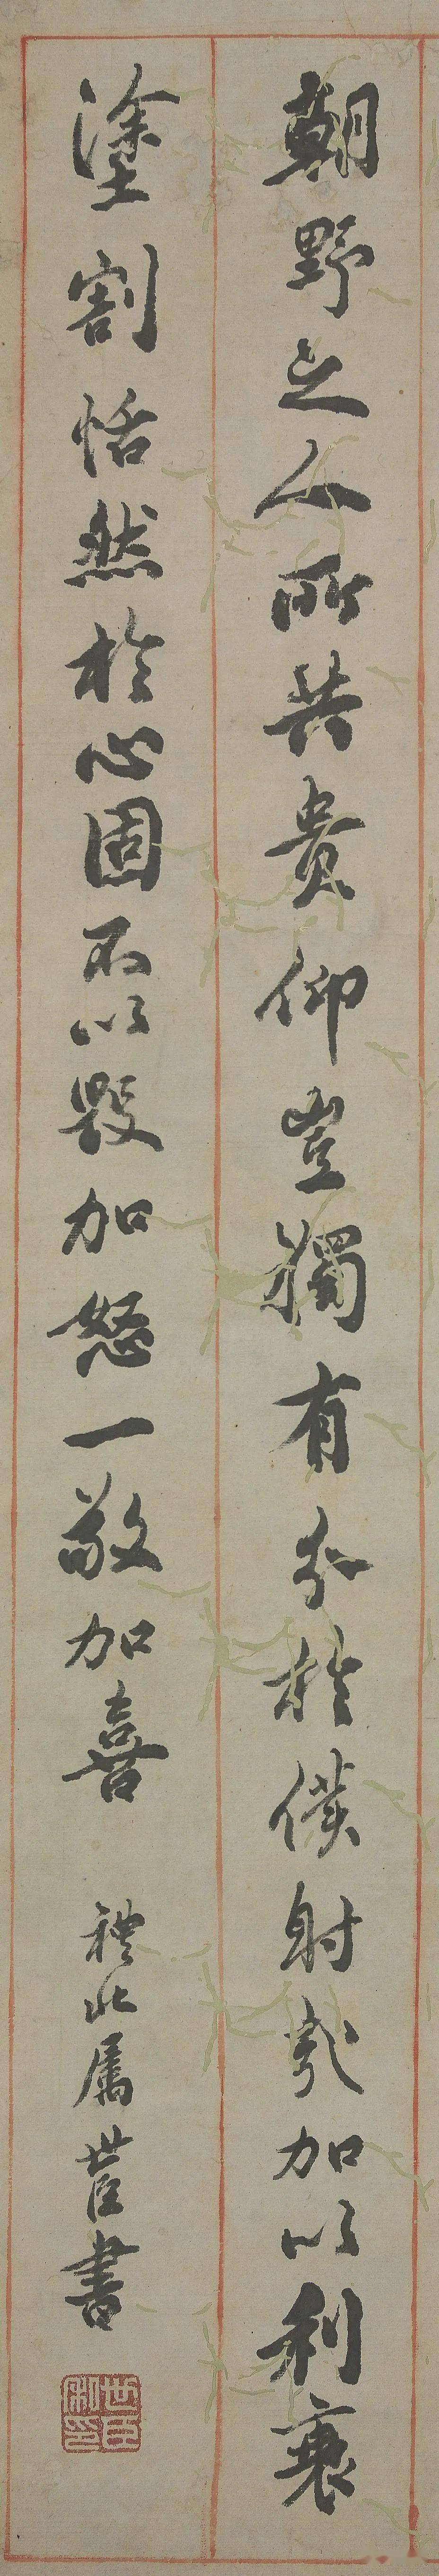 朝野之人所共貴仰豈獨有分於僕射哉加以利衰
塗割恬然於心固不以毀加怒一敬加喜
禮屬世臣書
世臣私印